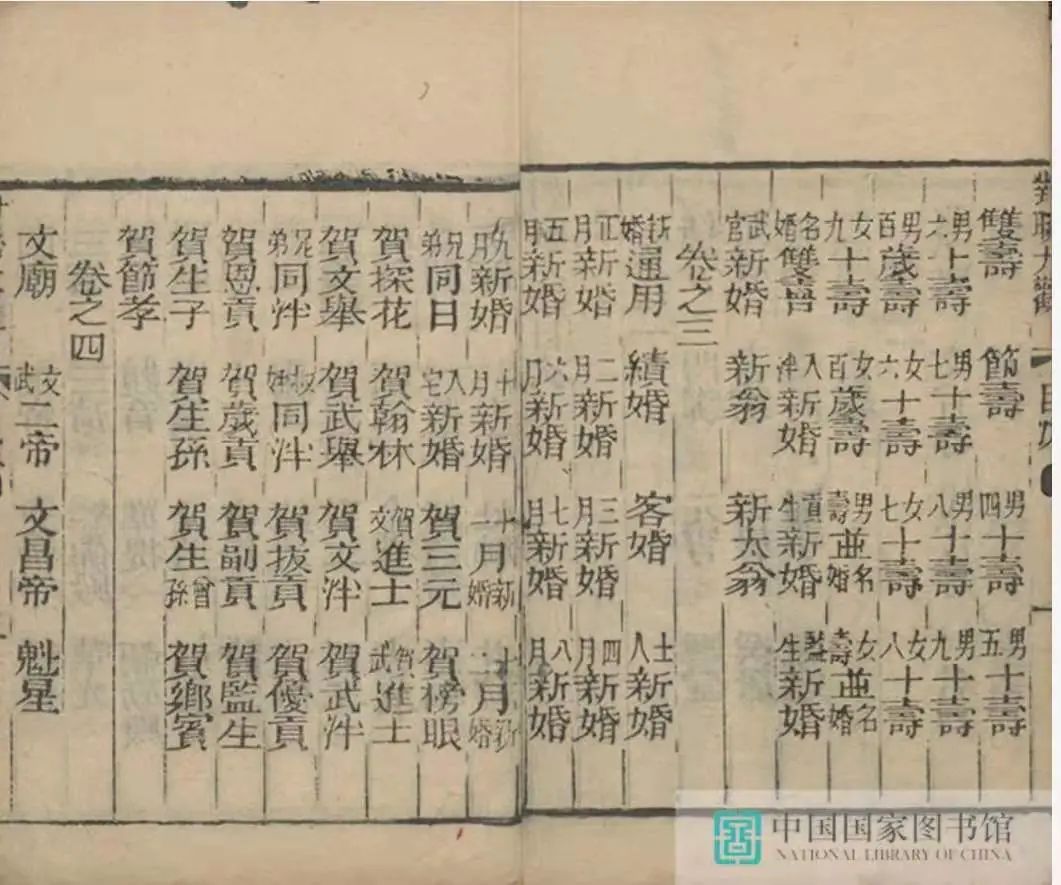 對聯大觀
雙壽 節壽 男四十壽 男五十壽
男六十壽 男七十壽 男八十壽 男九十壽
男百歲壽 女六十壽 女七十壽 女八十壽
女九十壽 女百歲壽 男壽並名婚 女壽並名婚
名婚雙喜 入泮新婚 貢生新婚 監生新婚
武官新婚 新翁 新太翁
卷之三
新婚通用 續婚 客婚 士人新婚
正月新婚 二月新婚 三月新婚 四月新婚
五月新婚 六月新婚 七月新婚 八月新婚
九月新婚 十月新婚 十一月新婚 十二月新婚
兄弟同日 入宅新婚 賀三元 賀榜眼
賀探花 賀翰林 賀文進士 賀武進士
賀文舉 賀武舉 賀文泮 賀武泮
兄弟同泮 叔姪同泮 賀拔貢 賀優貢
賀恩貢 賀歲貢 賀副貢 賀監生
賀生子 賀生孫 賀生曾孫 賀鄉賓
賀節孝
卷之四
文廟 文武二帝 文昌帝 魁星
中国国家图书馆
NATIONAL LIBRARY OF CHINA